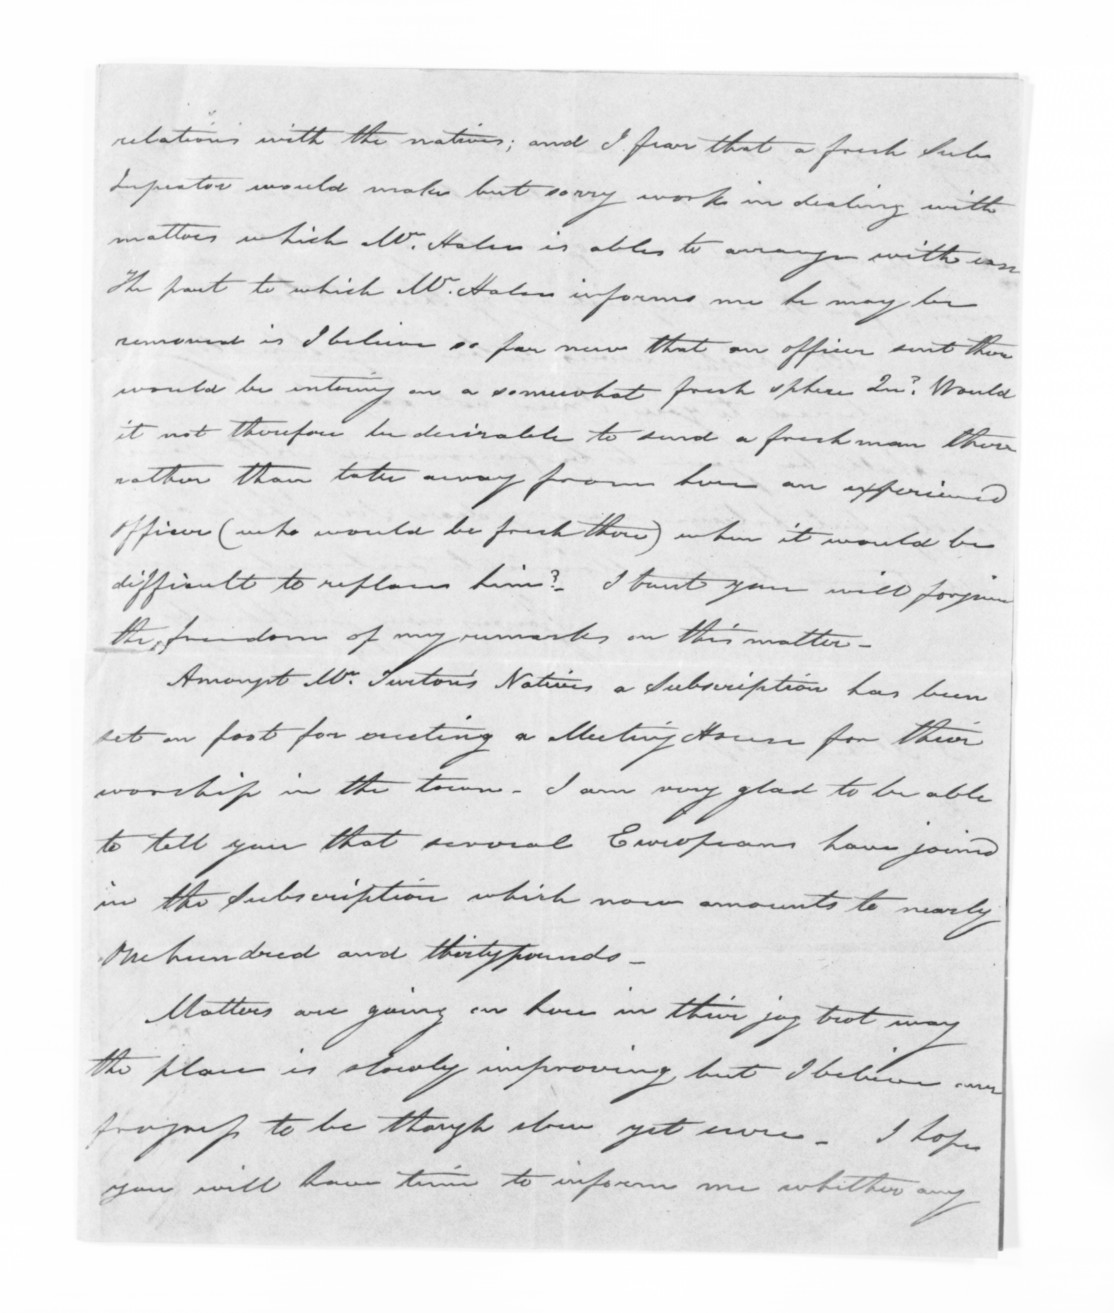 relations with the natives; and I fear that a fresh Sub
Inspector would make but sorry work in dealing with
matters which Mr. Halse is able to arrange with ease
The part to which Mr. Halse informs me he may be
removed is I believe so far new that an officer sent there
would be entering on a somewhat fresh sphere Qn? Would
it not therefore be desirable to send a fresh man there
rather than take away from here an experienced
officer (who would be fresh there) when it would be
difficult to replace him? - I trust you will forgive
the freedom of my remarks on this matter -
Amongst Mr. Turton's Natives a Subscription has been
set on foot for erecting a Meeting House for their
worship in the town - I am very glad to be able
to tell you that several Europeans have joined
in the Subscription which now amounts to nearly
One hundred and thirty pounds -
Matters are going on here in their jog trot way
the place is slowly improving but I believe our
progress to be though slow yet sure - I hope
you will have time to inform me whether any